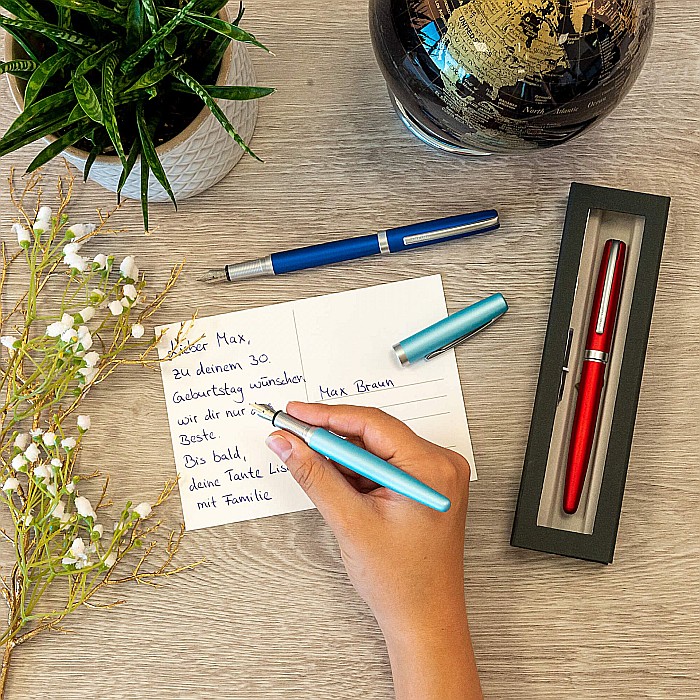 Lieber Max,
zu deinem 30.
Geburtstag wünschen
wir dir nur
Beste.
Bis bald,
deine Tante Lis
mit Familie
Max Braun
North Atlantic
Ocean